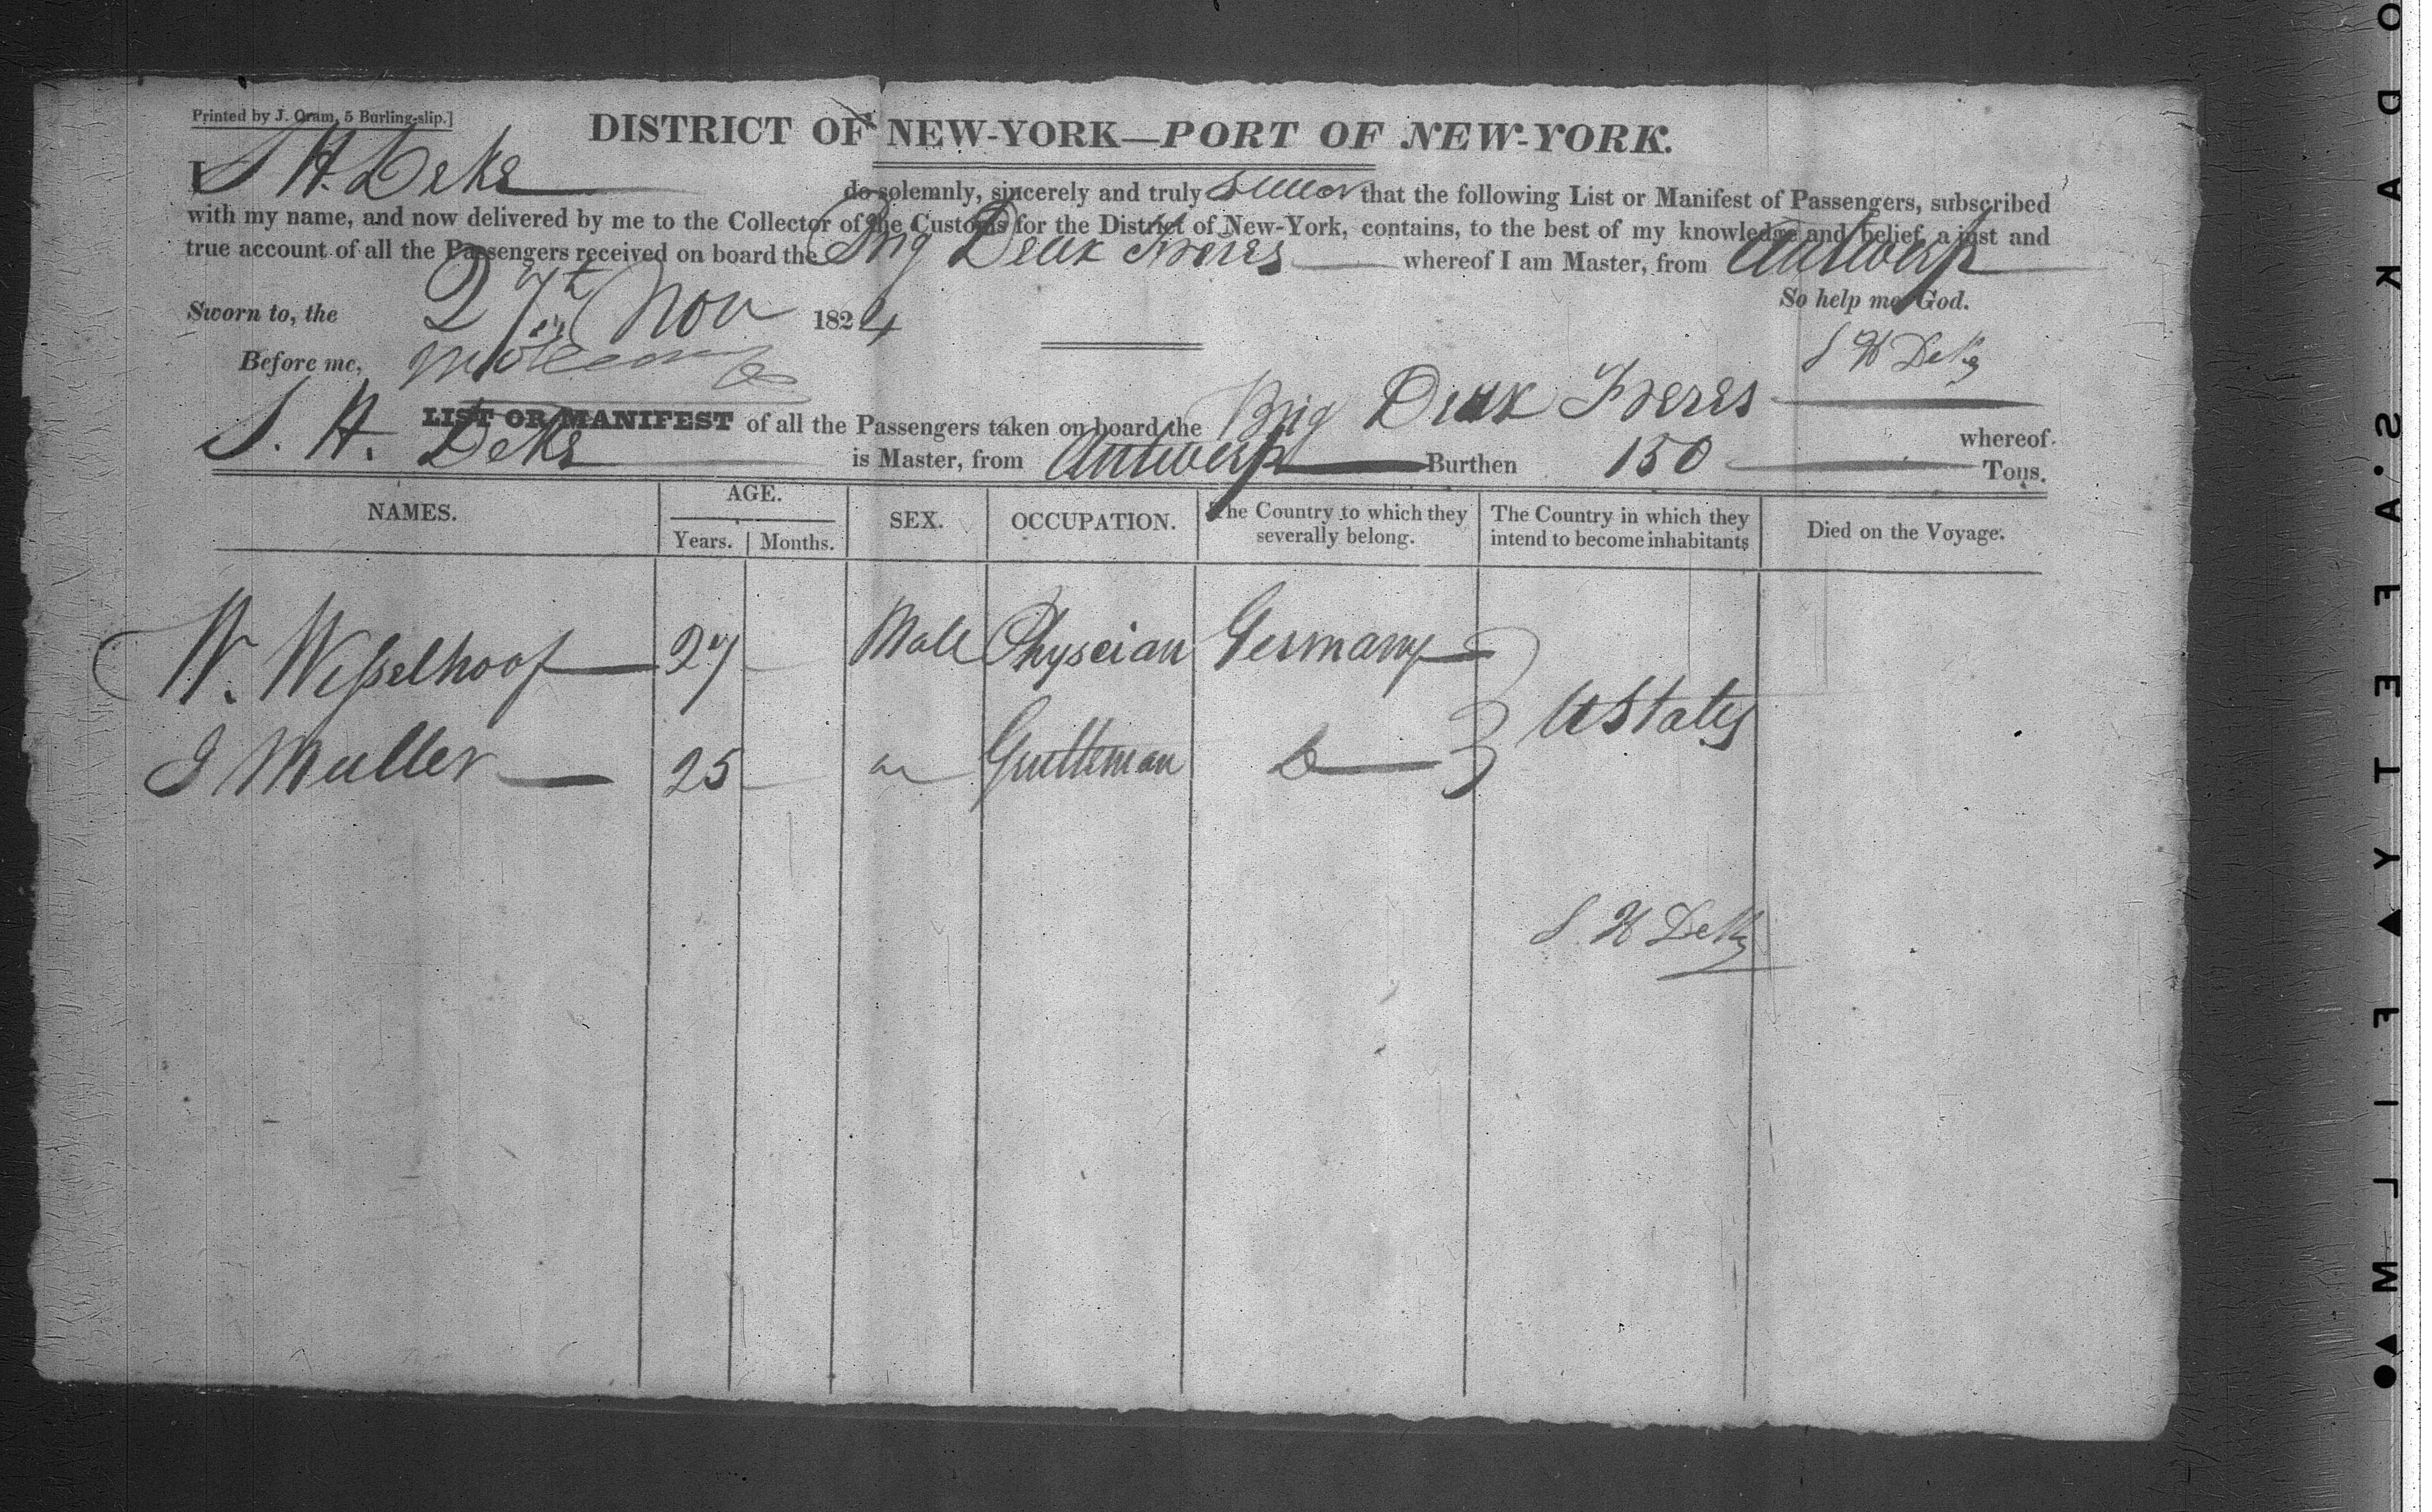 Printed by J. Oram, 5 Burling-slip.]
DISTRICT OF NEW-YORK—PORT OF NEW-YORK.
I S H. Deke do solemnly, sincerely and truly swear that the following List or Manifest of Passengers, subscribed
with my name, and now delivered by me to the Collector of the Customs for the District of New-York, contains, to the best of my knowledge and belief, a just and
true account of all the Passengers received on board the Brig Deux Freres whereof I am Master, from Antwerp
So help me God.
Sworn to, the 27th Nov 1824
S H Deke
Before me,
LIST OR MANIFEST of all the Passengers taken on board the Brig Deux Freres whereof
S. H. Deke is Master, from Antwerp Burthen 150 Tons.
NAMES. AGE. Years. Months. SEX. OCCUPATION. The Country to which they severally belong. The Country in which they intend to become inhabitants Died on the Voyage.
W. Wesselhoof 27 Male Physcian Germany
U States
J Muller 25 Gentleman Do
S. H Deke
●▲MICROFILM ED BY